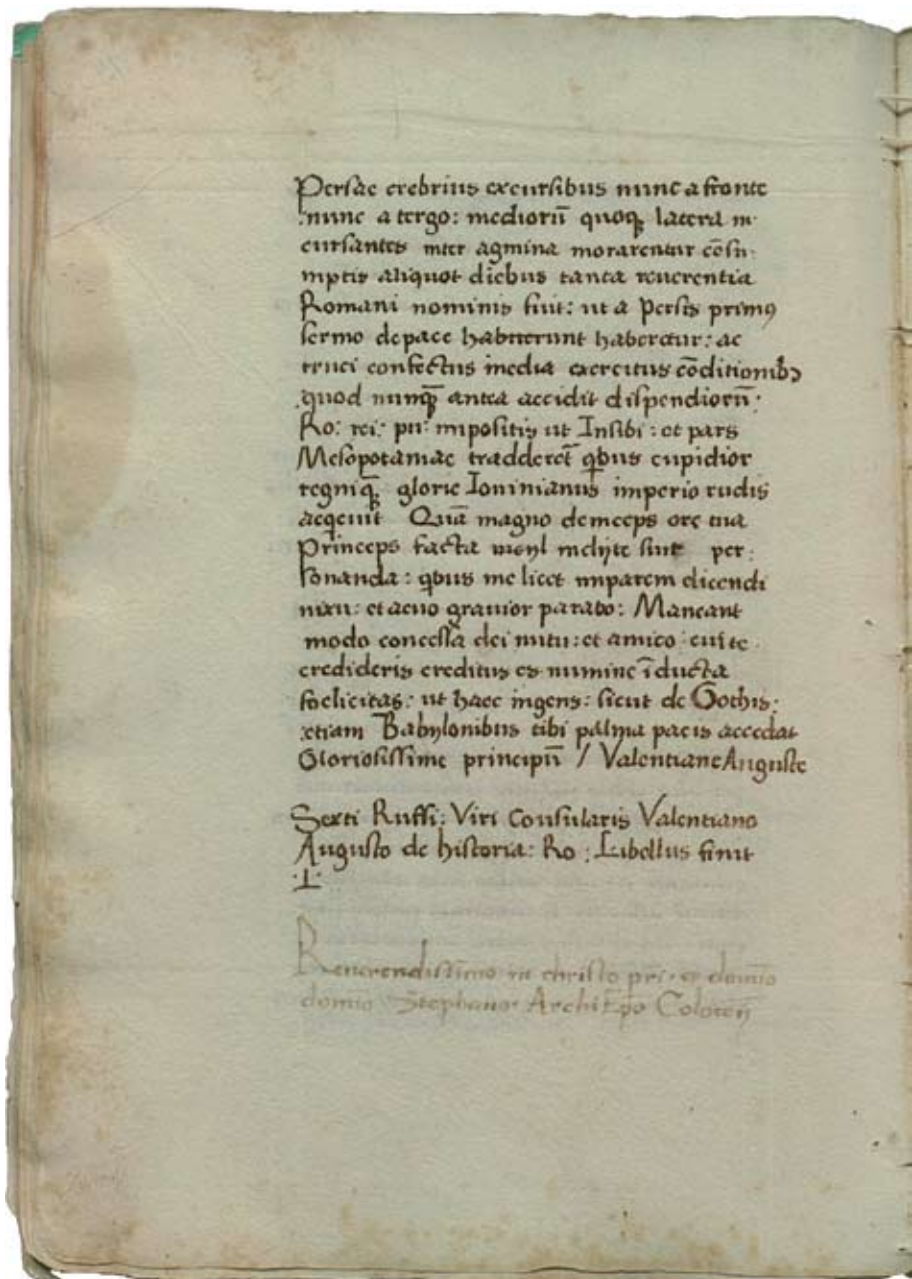 Persae crebrius excursibus nunc a fronte
nunc a tergo: mediorū quoq; latera in
cursantes inter agmina morarentur cōsu
mptis aliquot diebus tanta reverentia
Romani nominis fuit: ut a Persis primꝰ
sermo de pace habuerunt haberetur: ac
truci confectus inedia exercitus cōditionibꝫ
quod nunq̄ antea accidit dispendiorū
Ro: rei: pu: impositis ut Insibi: et pars
Mesopotamiae tradderet̄ qbus cupidior
regniq̄ glorie Iovinianus imperio rudis
acqevit Quā magno deinceps ore tua
Princeps facta inclyte sunt per
sonanda: qbus me licet imparem dicendi
nixu: et aevo gravior parabo: Maneant
modo concessa dei nutu: et amico cui te
credideris creditus es numine īducta
foelicitas: ut haec ingens: sicut de Gothis:
etiam Babylonibus tibi palma pacis accedat
Gloriosissime principū / Valentiane Auguste
Sexti Ruffi: Viri Consularis Valentiano
Augusto de historia: Ro: Libellus finit
Reverendissimo in christo pri: et domīo
domīo Stephano Archi Ep̄o Colocen̄